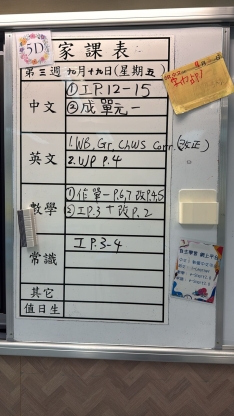 5D
家課表
第三週 九月十九日(星期五)
中文
①工P.12-15
②成單元一
英文
1.WB, Gr, ChWS Corr.(改正)
2.WP P.4
數學
①作單一P.6,7 改P.4,5
②工P.3+改P.2
常識
工P.3-4
其它
值日生